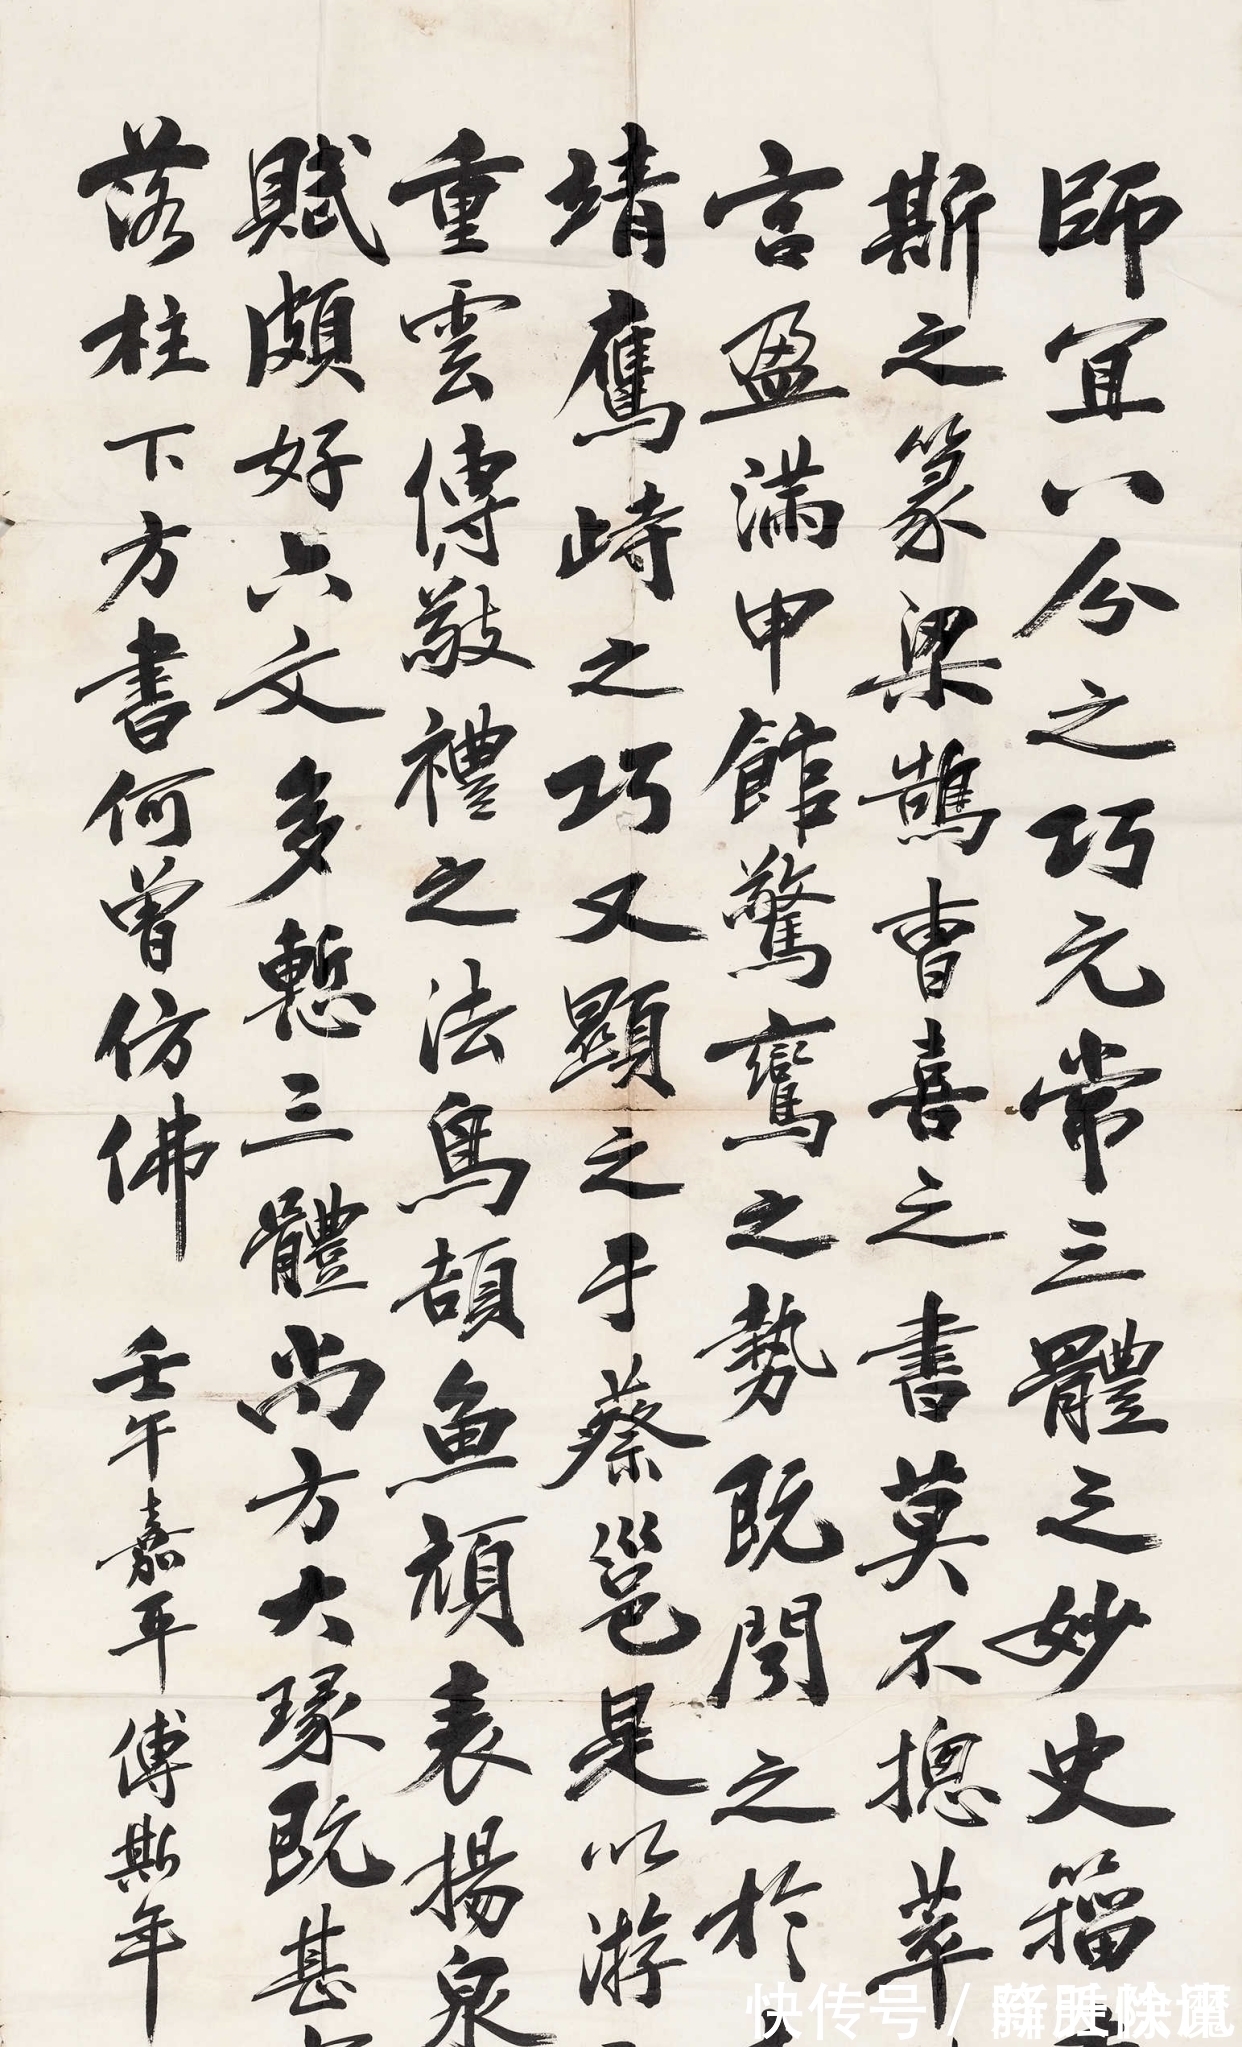 師宜八分之巧元常三體之妙史籀
斯之篆梁鵠曹喜之書莫不摠萃
言盈滿甲館驚鸞之勢既聞之於
靖鷹峙之巧又顯之于蔡邕是以游
重雲傳敬禮之法鳥頡魚頏表揚泉
賦頗好六文多慙三體尚方大篆既甚
落柱下方書何曾仿佛
壬午嘉平傅斯年
快传号/